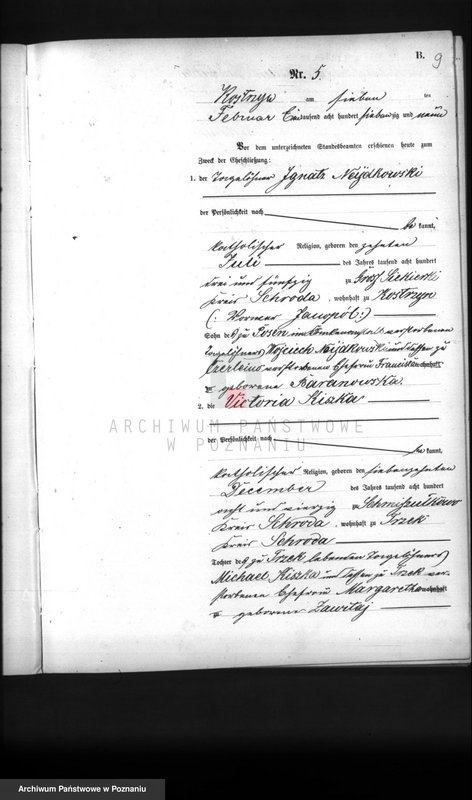 B.
9
Nr. 5.
Kostrzyn am sieben ten
Februar Eintausend acht hundert siebenzig und neun
Vor dem unterzeichneten Standesbeamten erschienen heute zum
Zweck der Eheschließung:
1. der Tagelöhner Ignatz Neydkowski
der Persönlichkeit nach
be kannt,
katholischer Religion, geboren den zehnten
Juli des Jahres tausend acht hundert
drei und fünfzig zu Groß Siekierki
Kreis Schroda, wohnhaft zu Kostrzyn
(: Vormer Janopol :)
Sohn des zu Posen im verstorbenen
Tagelöhners Wojciech Neydkowski und dessen zu
verstorbenen Ehefrau Franciska wohnhaft
geborene Baranowska.
2. die Victoria Kiszka
ARCHIWUM PAŃSTWOWE
W POZNANIU
der Persönlichkeit nach
be kannt,
katholischer Religion, geboren den siebenzehnten
December des Jahres tausend acht hundert
acht und vierzig zu
Kreis Schroda, wohnhaft zu Trzek
Kreis Schroda
Tochter des zu Trzek lebenden Tagelöhners
Michael Kiszka und dessen zu Trzek ver-
storbenen Ehefrau Margaretha wohnhaft
geborene Zawitaj
Archiwum Państwowe w Poznaniu